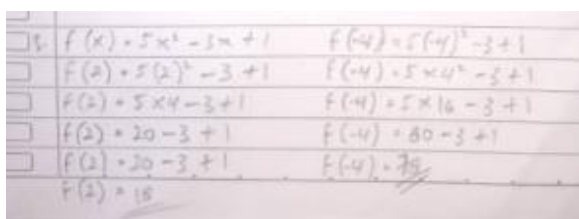 f(x) = 5x² - 3x + 1
f(2) = 5(2)² - 3 + 1
f(2) = 5 x 4 - 3 + 1
f(2) = 20 - 3 + 1
f(2) = 20 - 3 + 1
f(2) = 18
f(-4) = 5(-4)² - 3 + 1
f(-4) = 5 x 4² - 3 + 1
f(-4) = 5 x 16 - 3 + 1
f(-4) = 80 - 3 + 1
f(-4) = 78